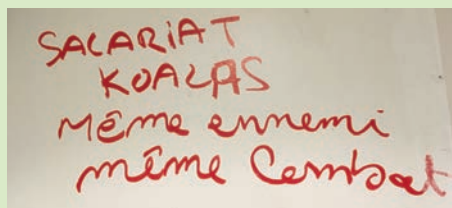 SALARIAT
KOALAS
Même ennemi
même Combat